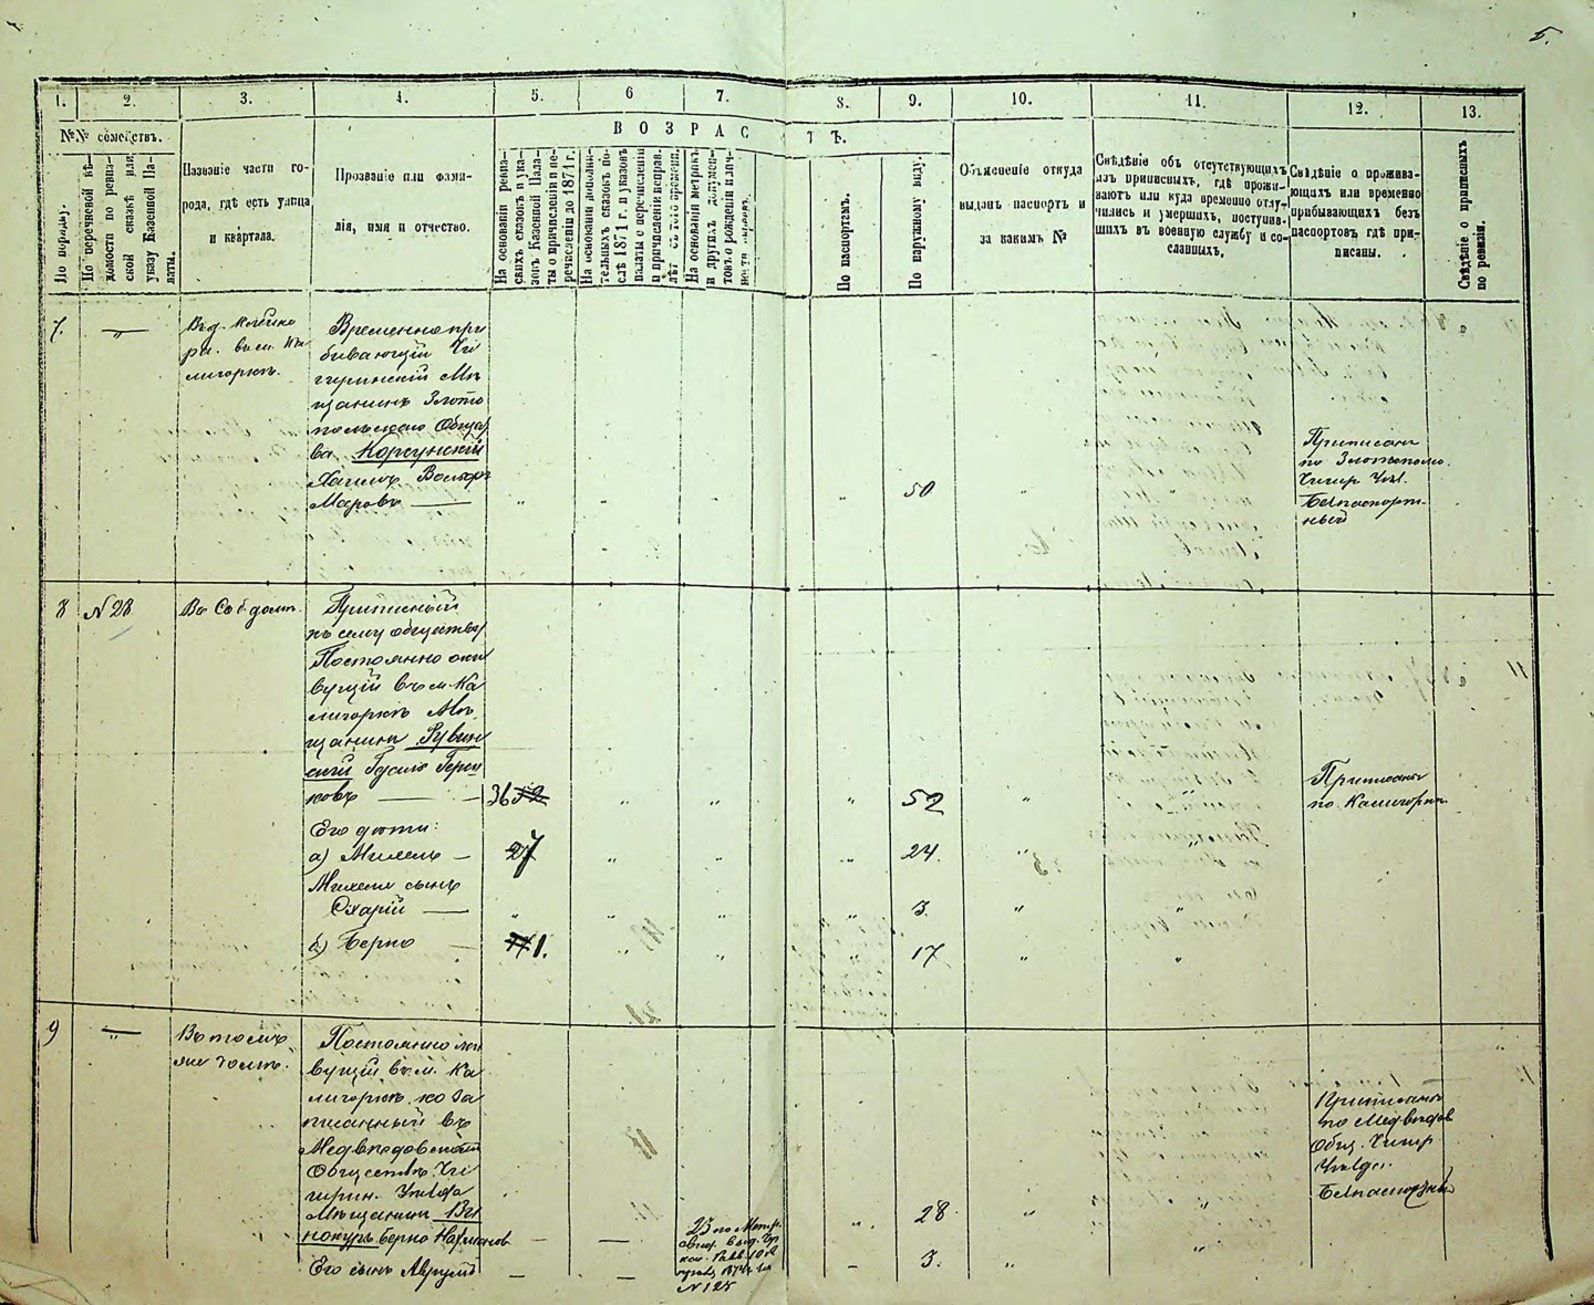 5.
1. 2. 3. 4. 5. 6 7. 8. 9. 10. 11. 12. 13.
№№ семействъ.
По порядку.
По перечневой вѣ-
домости по ревиз-
ской сказкѣ или
указу Казенной Па-
латы.
Названіе части го-
рода, гдѣ есть улица
и кварталa.
Прозваніе или фами-
лія, имя и отчество.
ВОЗРАСТЪ.
На основаніи ревиз-
скихъ сказокъ и ука-
зовъ Казенной Пала-
ты о причисленіи и пе-
речисленіи до 1871 г.
На основаніи дополни-
тельныхъ сказокъ по-
слѣ 1871 г. и указовъ
палаты о перечисленіи
и причисленіи исправ.
лѣт съ того времени.
На основаніи метрикъ
и другихъ докумен-
товъ о рожденіи и лич-
По паспортамъ.
По наружному виду.
Объясненіе откуда
выданъ паспортъ и
за какимъ №
Свѣдѣніе объ отсутствующихъ
изъ приписныхъ, гдѣ прожи-
ваютъ или куда временно отлу-
чились и умершихъ, поступив-
шихъ въ военную службу и со-
сланныхъ.
Свѣдѣніе о прожива-
ющихъ или временно
прибывающихъ безъ
паспортовъ гдѣ при-
писаны.
Свѣдѣніе о приписныхъ
по ревизіи.
7. — "
въ м. Ка
лигоркѣ.
Временно при
бывающій Чи
гиринскій Мѣ
щанинъ Злато
польскаго Общес
ва Корсунскій
Вольфъ
Меировъ —
" " 50 "
Приписанъ
по Златополю
Чигир. Уѣз.
Безпаспорт-
ный
8 N 28 Въ Соб. домѣ.
Приписный
къ сему обществу
Постоянно жи
вущій въ м. Ка
лигоркѣ Мѣ
щанинъ Рувин
скій Герш
ковъ — — 36 52 " " " 52 "
Приписанъ
по Калигоркѣ
Его дѣти:
а) Михель — 27 " " " 24. "
Михеля сынъ
Схарій — " " " " 3. " "
б) Берко — 11 1. " " " 17 " "
9 — " Въ томъ
же домѣ.
Постоянно жи
вущій въ м. Ка
лигоркѣ но за
писанный въ
Медвѣдовскомъ
Обществѣ Чи
гирин. Уѣзда
Мѣщанинъ Ви
нокуръ Берко Нахмановъ — — " 28 " "
23 по Метр.
N 128
Приписанъ
по Медвѣдов
Общ. Чигир
Уѣзда.
Безпаспортный
Его сынъ Аврумъ — — – 3. " "